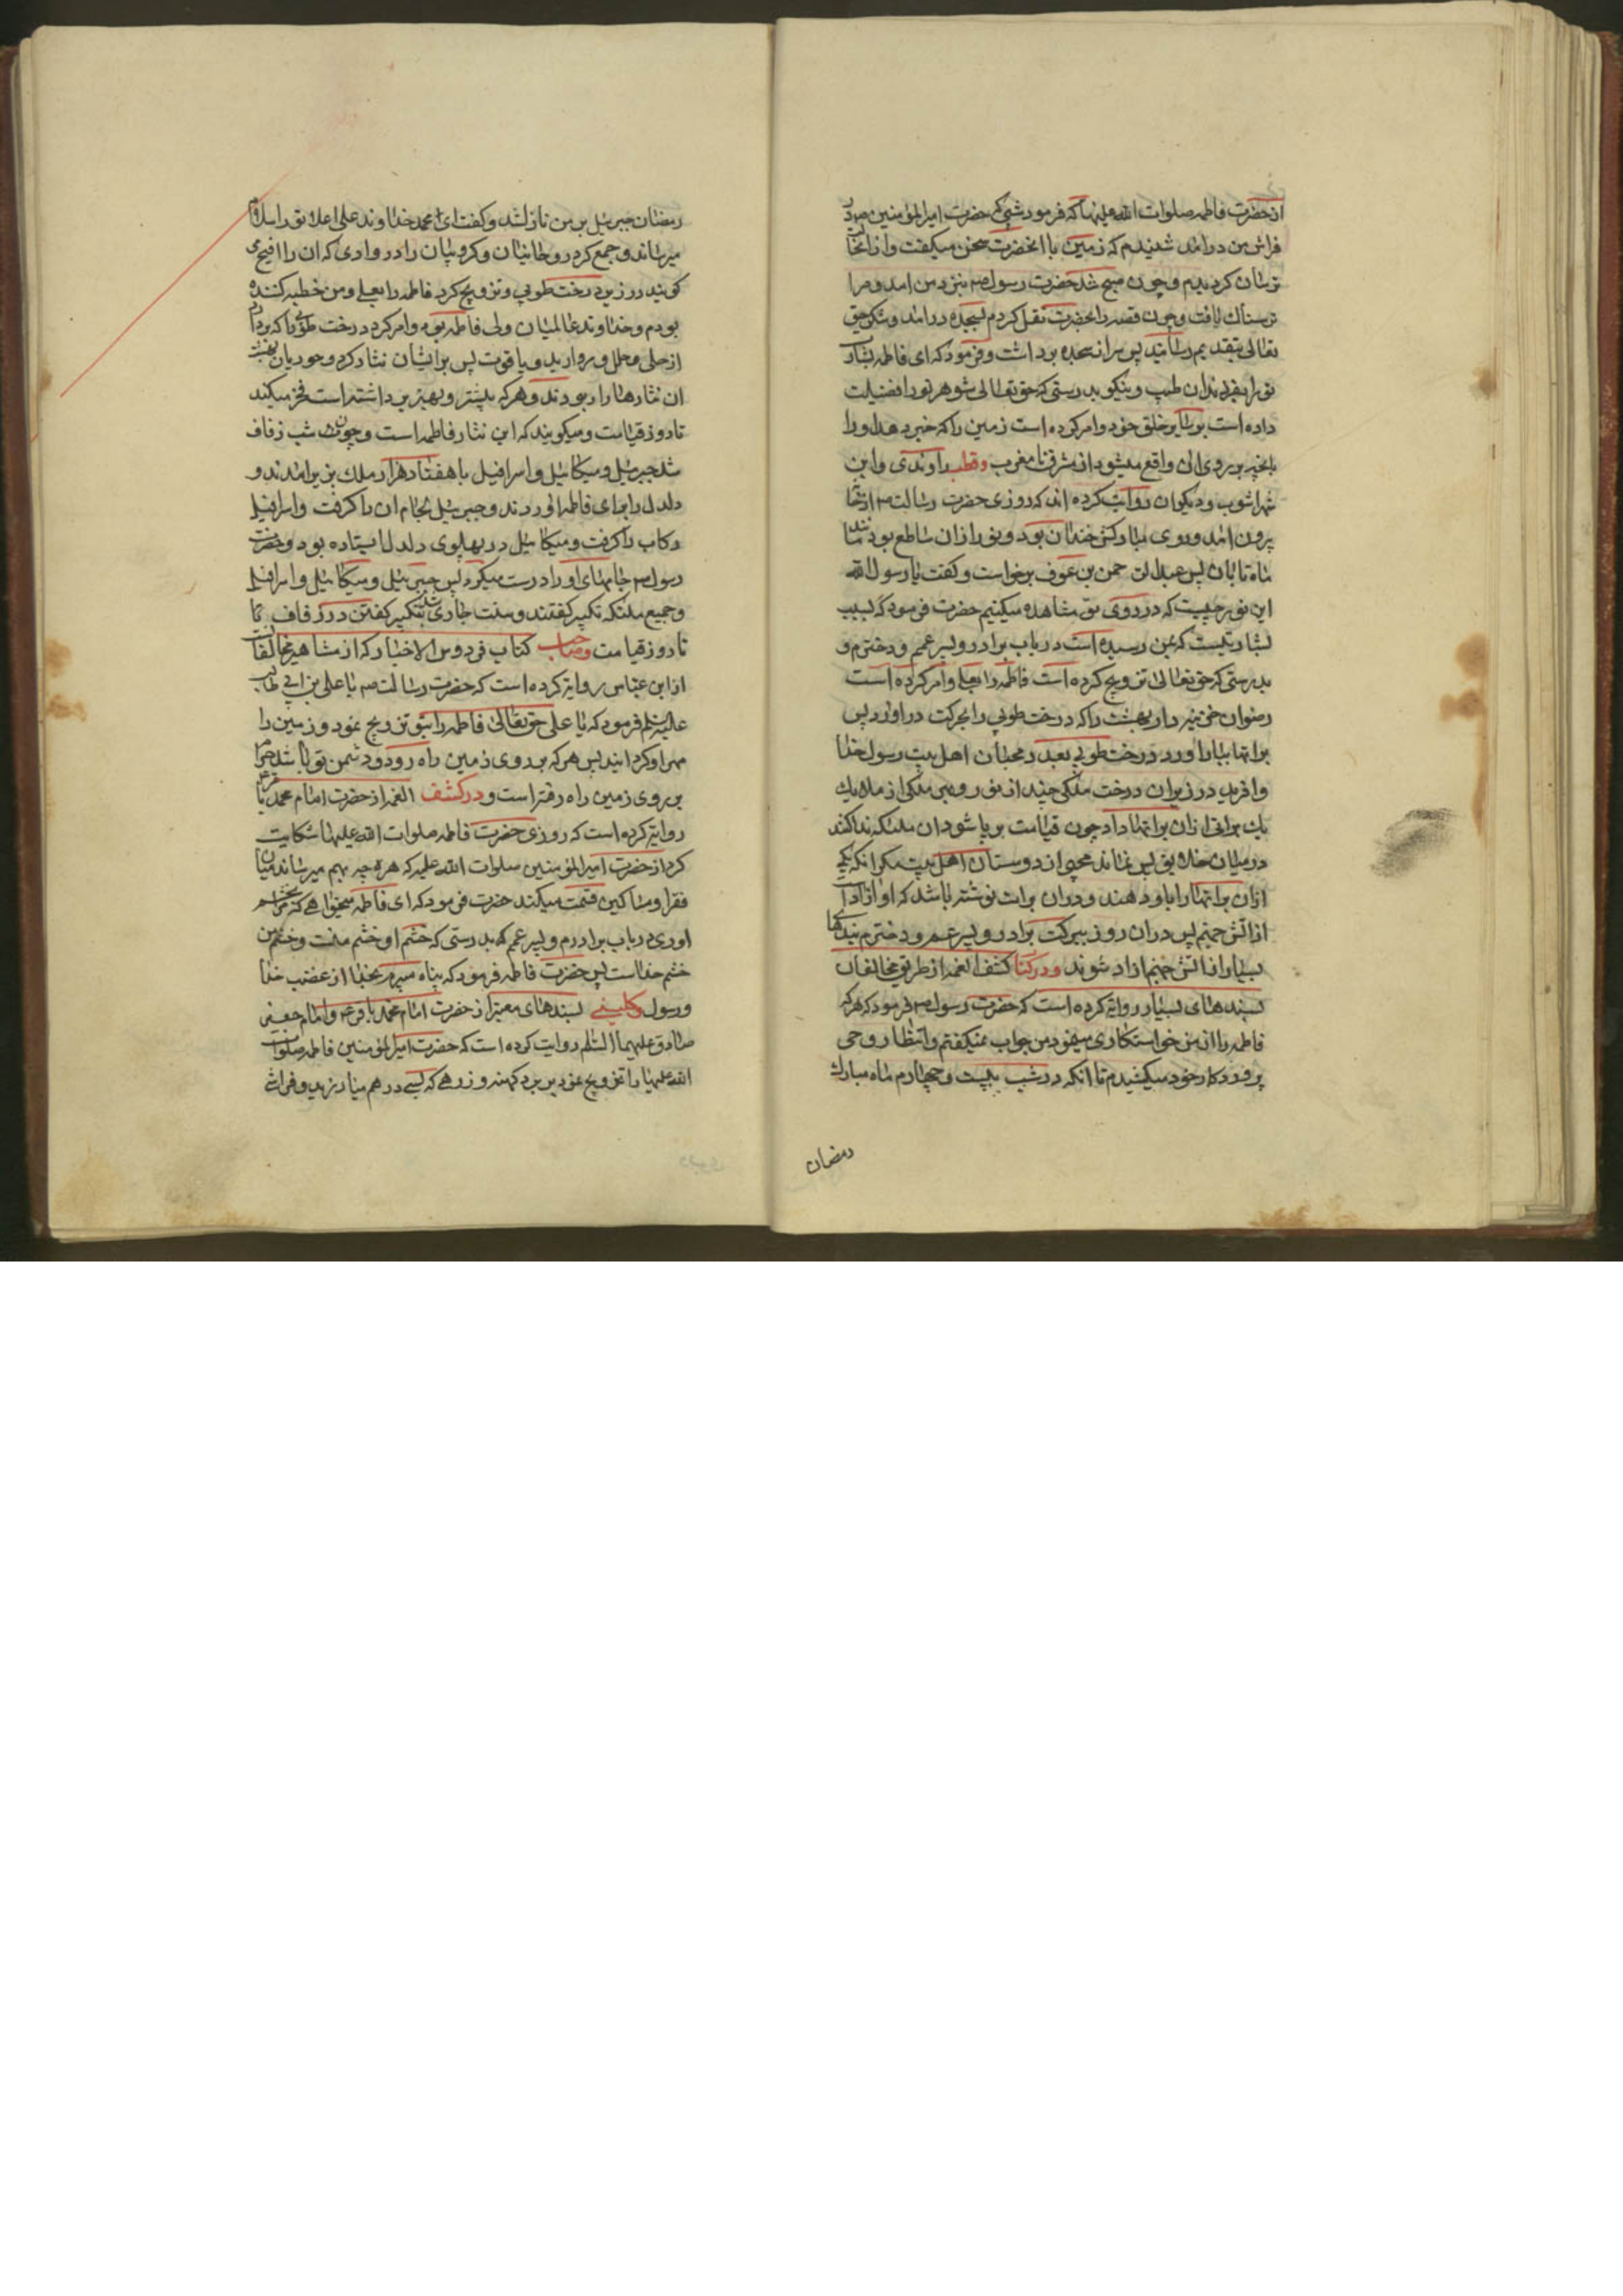 از حضرت فاطمه صلوات الله علیها که فرمود شبی که حضرت امیرالمؤمنین ع در
فراش من درامد شنیدم که زمین با انحضرت سخن میکفت و از انحال
ترسان کردیدم و چون صبح شد حضرت رسول ص بنزد من امد و مرا
ترسناك یافت و چون قصه را بحضرت نقل کردم بسجده درامد و شکر حق
تعالی بتقدیم رسانید پس سر از سجده برداشت و فرمود که ای فاطمه بشارت
تو را بفرزندان طیب و نیکو بدرستی که حق تعالی شوهر تو را فضیلت
داده است بر سایر خلق خود و امر کرده است زمین را که خبر دهد او را
بانچه بر روی ان واقع میشود از مشرق تا مغرب و قطب راوندی و ابن
شهراشوب و دیکران روایت کرده اند که روزی حضرت رسالت ص از خانه
بیرون امد و روی مبارکش خندان بود و نور از ان ساطع بود مانند
ماه تابان پس عبدالرحمن بن عوف برخواست و کفت یا رسول الله
این نور چیست که در روی تو مشاهده میکنیم حضرت فرمود که بسبب
بشارتیست که بمن رسیده است در باب برادر و پسر عمم و دخترم و
بدرستی که حق تعالی تزویج کرده است فاطمه را بعلی و امر کرده است
رضوان خزینه دار بهشت را که درخت طوبی را بحرکت دراورد پس
براتها بباراورد درخت طوبی بعدد محبان اهل بیت رسول خدا
و افرید در زیر ان درخت ملکی چند از نور و بهر ملکی از ملایك
یك براتی از ان براتها داد چون قیامت برپا شود ان ملئکه ندا کنند
در میان خلایق پس نماند محبی از دوستان اهل بیت مکر انکه یکی
از ان براتها را باو دهند و در ان برات نوشته باشد که او ازاد است
از اتش جهنم پس در ان روز ببرکت برادر و پسر عم و دخترم بندهای
بسیار از اتش جهنم ازاد شوند و در کتاب کشف الغمه از طریق مخالفان
بسندهای بسیار روایة کرده است که حضرت رسول ص فرمود که هر که
فاطمه را از من خواستکاری مینمود من جواب نمیکفتم و انتظار وحی
پروردکار خود میکشیدم تا انکه در شب بیست و چهارم ماه مبارك
رمضان
رمضان جبرئیل بر من نازل شد و کفت ای محمد خداوند علی اعلا تو را سلام
میرساند و جمع کرد روحانیان و کروبیان را در وادی که ان را افیح می
کویند در زیر درخت طوبی و تزویج کرد فاطمه را بعلی و من خطبه کننده
بودم و خداوند عالمیان ولی فاطمه بود و امر کرد درخت طوبی را که بردارد
از حلی و حلل و مروارید و یاقوت پس بر ایشان نثار کرد و حوریان بهشت
ان نثارها را ربودند و هر که بیشتر و بهتر برداشته است فخر میکند
تا روز قیامت و میکویند که این نثار فاطمه است و چون شب زفاف
شد جبرئیل و میکائیل و اسرافیل با هفتاد هزار ملك بزیر امدند و
دلدل را برای فاطمه اوردند و جبرئیل لجام ان را کرفت و اسرافیل
رکاب را کرفت و میکائیل در پهلوی دلدل ایستاده بود و حضرت
رسول ص جامهای او را درست میکرد پس جبرئیل و میکائیل و اسرافیل
و جمیع ملئکه تکبیر کفتند و سنت جاری شد بتکبیر کفتن در زفاف
تا روز قیامت و صاحب کتاب فردوس الاخبار که از مشاهیر مخالفانست
از ابن عباس روایة کرده است که حضرت رسالت ص با علی بن ابی طالب
علیه السلم فرمود که یا علی حق تعالی فاطمه را بتو تزویج نمود و زمین را
مهر او کردانید پس هر که بر روی زمین راه رود و دشمن تو باشد حرام
بر روی زمین راه رفته است و در کشف الغمه از حضرت امام محمد باقر ع
روایة کرده است که روزی حضرت فاطمه صلوات الله علیها شکایت
کرد از حضرت امیرالمؤمنین صلوات الله علیه که هر چه بهم میرساند میان
فقرا و مساکین قسمت میکند حضرت فرمود که ای فاطمه میخواهی که مرا بخشم
اوری در باب برادرم و پسر عمم که بدرستی که خشم او خشم منست و خشم من
خشم خداست پس حضرت فاطمه فرمود که پناه میبرم بخدا از غضب خدا
و رسول و کلینی بسندهای معتبر از حضرت امام محمد باقر ع و امام جعفر
صادق علیهما السلم روایت کرده است که حضرت امیرالمؤمنین فاطمه صلوات
الله علیها را تزویج نمود بر برد کهنه و زرهی که بسی درهم میارزید و فراش